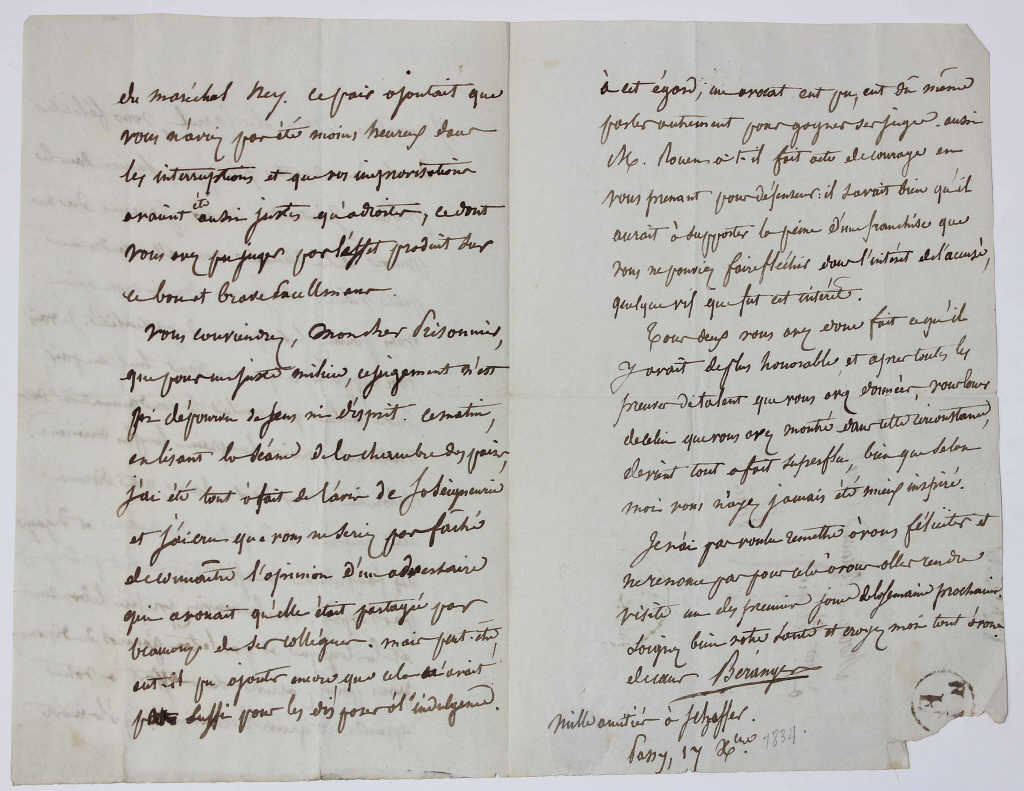 du maréchal Ney. ce pair ajoutait que
vous n'aviez pas été moins heureux dans
les interruptions et que vos improvisations
avaient été aussi justes qu'adroites, ce dont
vous avez pu juger par l'effet produit sur
ce bon et brave Excelmans.
Vous conviendrez, mon cher Prisonnier,
que pour un juste milieu, ce jugement n'est
pas dépourvu de sens ni d'esprit. ce matin,
en lisant la séance de la chambre des pairs,
j'ai été tout à fait de l'avis de sa Seigneurie
et j'ai cru que vous ne seriez pas fâché
de connaître l'opinion d'un adversaire
qui avouait qu'elle était partagée par
beaucoup de ses collègues. mais peut-être
eut-il pu ajouter encore que cela n'avait
pas suffi pour les disposer à l'indulgence.
à cet égard, un avocat eut pu, eut dû même
parler autrement pour gagner ses juges. aussi
M. Rouen a-t-il fait acte de courage en
vous prenant pour défenseur: il savait bien qu'il
aurait à supporter la peine d'une franchise que
vous ne pouviez faire fléchir dans l'intérêt de l'accusé,
quelque vif que fut cet intérêt.
Tous deux vous avez donc fait ce qu'il
y avait de plus honorable et après toutes les
preuves de talent que vous avez données, vous louer
de celui que vous avez montré dans cette circonstance,
devient tout à fait superflu, bien que selon
moi vous n'ayez jamais été mieux inspiré.
Je n'ai pas voulu remettre à vous féliciter et
ne renonce pas pour cela à vous aller rendre
visite un des premiers jours de la semaine prochaine.
Soignez bien votre santé et croyez moi tout à vous
de cœur Béranger
mille amitiés à Scheffer.
Passy, 17 Xbre. 1834.